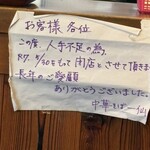 お客様 各位
この度、人手不足の為、
R7. 8/30をもって閉店とさせて頂きま
長年のご愛顧
ありがとうございました。
中華そば 一仙